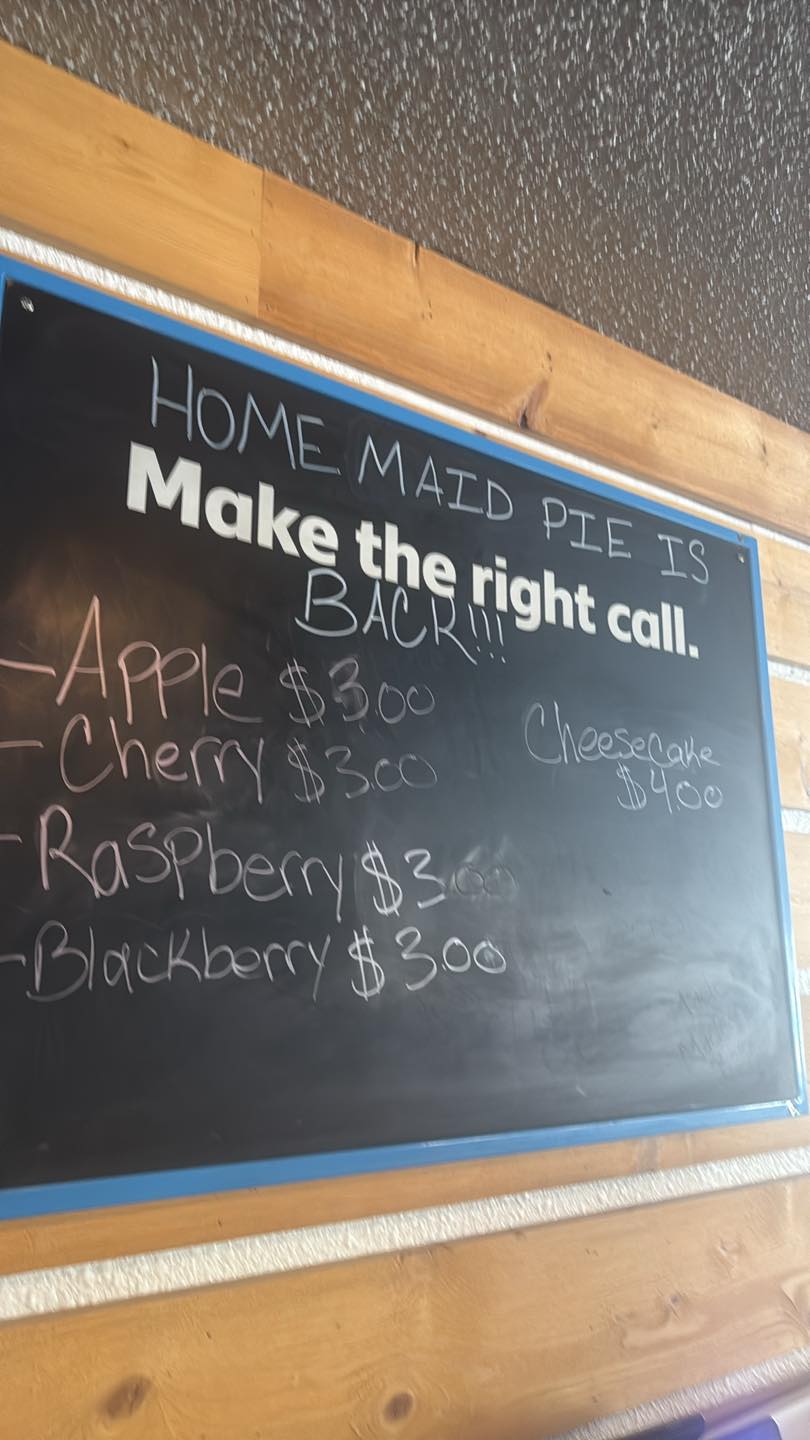 HOME MAID PIE IS
Make the right call.
BACK!!!
-Apple $3.00
-Cherry $3.00
-Raspberry $3.00
-Blackberry $3.00
Cheesecake
$4.00